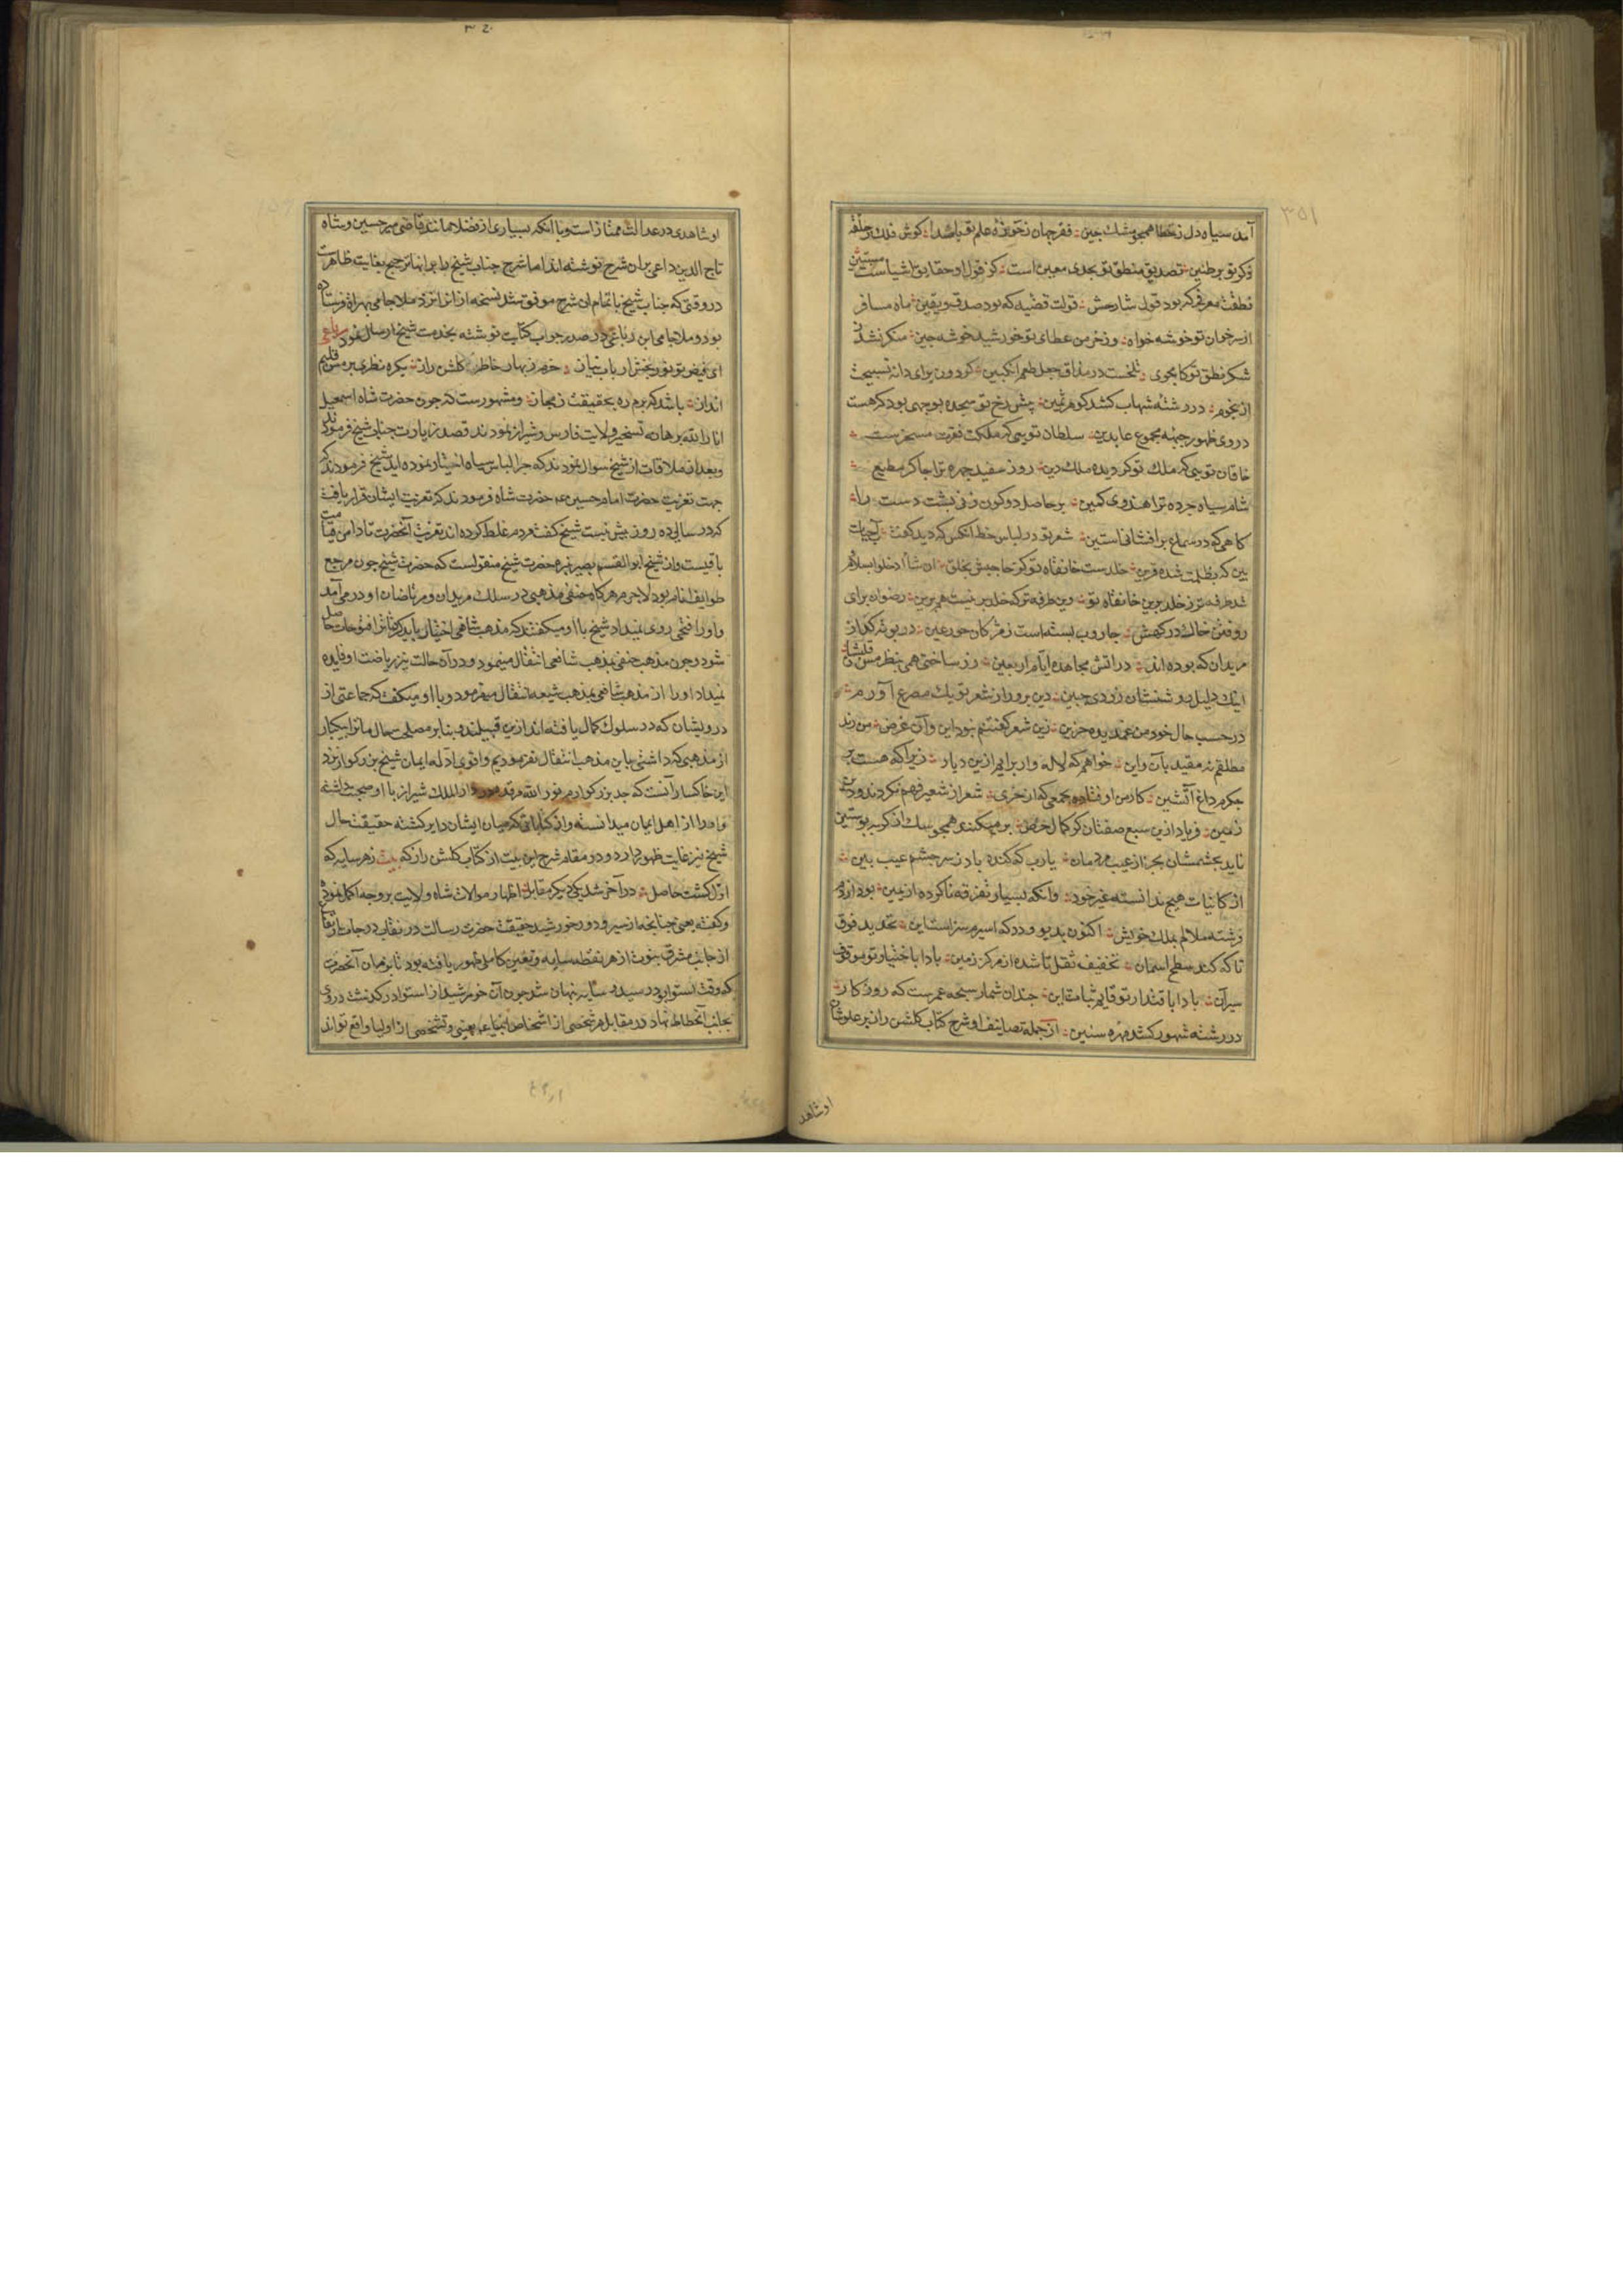 آمد سیاه دل ز خطا همچو مشک چین فقر جهان ز حرزه علم تو باشد گوش فلک ز حلقه
ذکر تو بر طنین تصدیق منطق تو بحدی معین است کز قول او حقایق اشیاست مستبین
نطقت معرفی که بود قول شارحش قولت قضیه که بود صدق و یقین ماه مسافر
از سر خوان تو خوشه خواه وز خرمن عطای تو خورشید خوشه چین منکر نشد
شکر نطق تو کامجوی تلخست در مذاق جعل طعم انکبین کردون برای دانه تسبیحت
از نجوم در رشته شهاب کشد کوهر ثمین پیش رخ تو سجده بوجهی بود که هست
در وی ظهور جبهه مجموع عابدین سلطان تویی که ملکت فقرت مسخرست
خاقان تویی که ملک تو کردیده ملک دین روز سفید چهره ترا چاکر مطیع
شام سیاه چرده ترا هندوی کمین بر حاصل دو کون فرنی پشت دست را
کاهی که در سماع برافشانی استین شعر تو در لباس خط انکس که دید کفت آب حیات
بین که بظلمت شده قرین خلدست خانقاه تو کز حاجبش بخلق ان شا ادخلوا بسلام
شد طرفه تر ز خلد برین خانقاه تو وین طرفه تر که خلد برین نیست هم برین رضوان برای
روفتن خاک درکهش جاروب بسته است ز مژکان حور عین در بوته کداز
مریدان که بوده اند در اتش مجاهده ایام اربعین زر ساختی همی بنظر مس قلبشان
اینک دلیل روشنشان زردی جبین دین پرور از شعر تو یک مصرع آورم
در حسب حال خود من غمدیده حزین زین شعر کفتنم نبود این و آن غرض من رند
مطلقم نه مقید بآن و این خواهم که لاله وار برایم ازین دیار زیرا که هست بر
جکرم داغ آتشین کارمن اوفتاده بجمعی که از خری شعر از شعیر فهم نکردند
زمین فریاد ازین سبع صفتان کز کمال خبث بر میکنند همچو سک از کربه پوستین
ناید بچشمشان بجز از عیب مردمان یارب که کنده باد ز سر چشم عیب بین
از کانیات هیچ ندانسته غیر خود وانکه بسیار تفرقه ناکرده از یمین بود از دم
فرشته ملالم بملک خویش اکنون بدیو و دد که اسیرم سزاست این تحدید فوق
تا که کند سطح اسمان تخفیف ثقل تا شده از مرکز زمین بادا باختیار تو موقوف
سیر آن بادا باقتدار تو قایم ثبات این چندان شمار سبحه عمرست که روزکار
در رشته شهور کشد مهره سنین از جمله تصانیف او شرح کتاب کلشن راز بر علو شان
او شاهد
او شاهدی در عدالت ممتاز است و با انکه بسیاری از فضلا همانند قاضی میر حسین و شاه
تاج الدین داعی بران شرح نوشته اند اما شرح جناب شیخ را بر انها ترجیح بغایت ظاهرست
در وقتی که جناب شیخ باتمام ان شرح موفق شد نسخه از انرا نزد ملا جامی بهراة فرستاده
بود و ملا جامی این رباعی در صدر جواب کتابت نوشته بخدمت شیخ ارسال نمود رباعی
ای فیض تو نور بخش ارباب نیاز خرم ز بهار خاطرت کلشن راز یکره نظری بر مس قلبم
انداز باشد که برم ره بحقیقت ز مجاز و مشهورست که چون حضرت شاه اسمعیل
انار الله برهانه تسخیر ولایت فارس و شیراز نمودند قصد زیارت جناب شیخ فرمودند
و بعد از ملاقات از شیخ سوال نمودند که چرا لباس سیاه اختیار نموده اید شیخ فرمودند که
جهت تعزیت حضرت امام حسین عم حضرت شاه فرمودند که تعزیت ایشان قرار یافته
که در سالی ده روز بیش نیست شیخ کفت مردم غلط کرده اند تعزیت آنحضرت تا دامن قیامت
باقیست و از شیخ ابو القسم بصیر نبیره حضرت شیخ منقولست که حضرت شیخ چون مرجع
طوایف انام بود لاجرم هرکاه حنفی مذهبی در سلک مریدان و مرتاضان او در می آمد
و اورا فتحی روی نمیداد شیخ با او میکفتند که مذهب شافعی اختیار باید کرد تا ترا فتوحات حاصل
شود و چون مذهب حنفی بمذهب شافعی انتقال مینمود و در آن حالت نیز ریاضت او فایده
نمیداد اورا از مذهب شافعی بمذهب شیعه انتقال میفرمود و با او میکفت که جماعتی از
درویشان که در سلوک کمال یافته اند ازین قبیلند و بنابر مصلحت حال ما ترا بیکبار
از مذهبی که داشتی باین مذهب انتقال نفرمودیم و اقوی ادله ایمان شیخ بزرکوار نزد
این خاکسار آنست که جد بزرکوارم نور الله مرقده در دار الملک شیراز با او صحبت داشته
و اورا از اهل ایمان میدانسته و از کتاباتی که میان ایشان دایر کشته حقیقت حال
شیخ نیز غایت ظهور دارد و در مقام شرح این بیت از کتاب کلشن راز که بیت ز هر سایه که
اول کشت حاصل در آخر شد یکی دیکر مقابل اظهار موالات شاه ولایت بر وجه اکمل نموده
و کفته یعنی چنانچه از سیر و دور خورشید حقیقت حضرت رسالت در نقاب درجات ارتفاع
از جانب مشرق نبوت از هر نقطه سایه و تعین کاملی ظهور یافته بود تا بزمان آنحضرت
که وقت استوا بود رسید و سایه پنهان شد چون آن خورشید از استوا در کذشت و روی
بجانب انحطاط نهاد در مقابل هر شخصی از اشخاص انبیا عم تعینی و تشخصی از اولیا واقع تواند